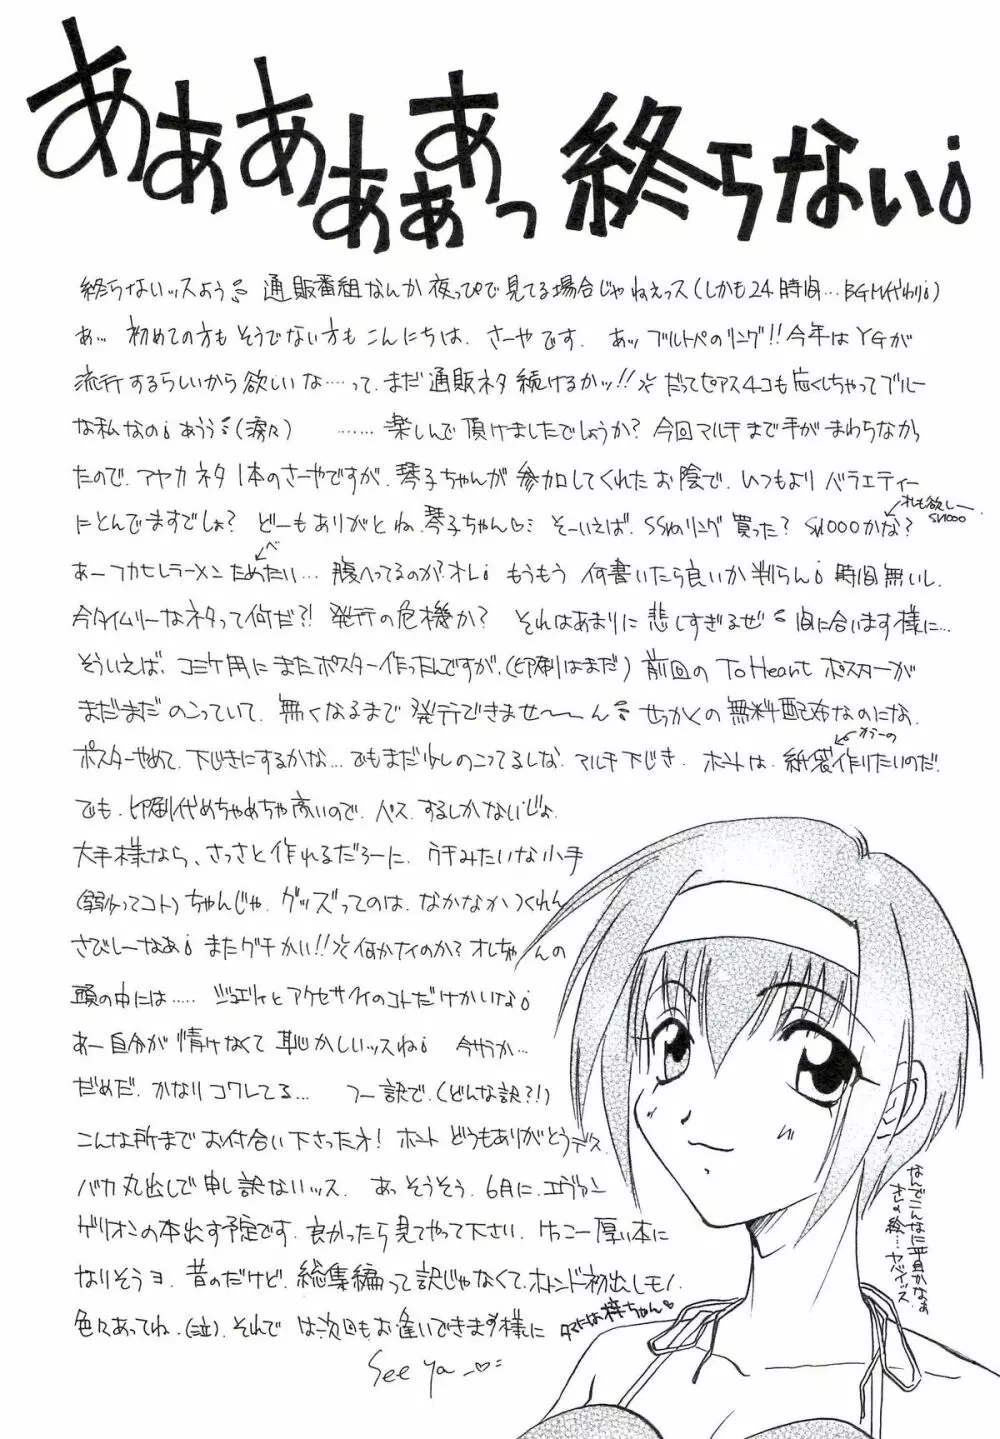 ああああああっ 終らない!
終らないッスよう 通販番組なんか夜っぴで見てる場合じゃねえっス(しかも24時間…BGM代わり!)
あ… 初めての方もそうでない方もこんにちは、さーやです。 あッ ブルトペのリング!!今年はYGが
流行するらしいから欲しいな……って、まだ通販ネタ続けるかッ!! だってピアス4コも亡くしちゃってブルー
な私なの! あうう(涙々) ……… 楽しんで頂けましたでしょうか?今回マルチまで手がまわらなかっ
たので、アヤカネタ1本のさーやですが、琴子ちゃんが参加してくれたお陰で、いつもよりバラエティー
にとんでますでしょ? どーもありがとね、琴子ちゃん♡ そーいえば、SSNのリング買った? SN1000かな?
オレも欲しー SN1000
あーフカヒレラーメンためたい… 腹へってるのか?オレ! もうもう 何書いたら良いか判らん! 時間無いし、
べ
今タイムリーなネタって何だ?! 発行の危機か? それはあまりに悲しすぎるぜ 間に合います様に…
そういえば、コミケ用にまたポスター作ったんですが、(印刷はまだ)前回のToHeartポスターが
まだまだのこっていて、無くなるまで発行できませ〜〜ん せっかくの無料配布なのにな、
ポスターやめて、下じきにするかな… でもまだ少しのこってるしな、マルチ下じき、ホントは、紙袋作りたいのだ。
カラーの
でも、印刷代めちゃめちゃ高いので、パス、するしかないじょ、
大手様なら、さっさと作れるだろーに、ウチみたいな小手
(弱小ってコト)ちゃんじゃ、グッズってのは、なかなかつくれん
さびしーなあ! またグチかい!! 何かナイのか? オレちゃんの
頭の中には…… ジュエリィとアクセサリィのコトだけかいな!
あー自分が情けなくて恥かしいッスね! 今サラか…
だめだ、かなりコワレてる… つー訳で、(どんな訳?!)
こんな所までお付合い下さった方! ホント どうもありがとうデス、
バカ丸出しで申し訳ないッス、 あっ そうそう、6月に、エヴァン
ゲリオンの本出す予定です、良かったら見てやって下さい、けっこー厚い本に
なりそうヨ、昔のだけど、総集編って訳じゃなくて、ホトンド初出しモノ、
色々あってね、(泣)、それで は、次回もお逢いできます様に
タマには梓ちゃん
See ya
なんでこんなに平目かなぁ
オレの絵… ヤバイッス